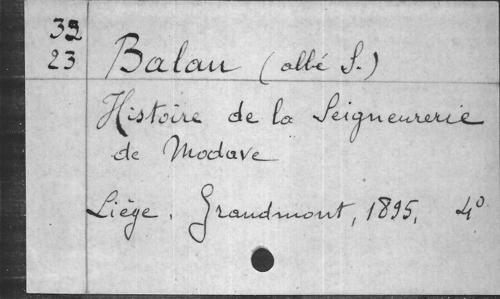 32
23
Balau (abbé S.)
Histoire de la Seigneurerie
de Modave
Liége. Grandmont, 1895, 4°